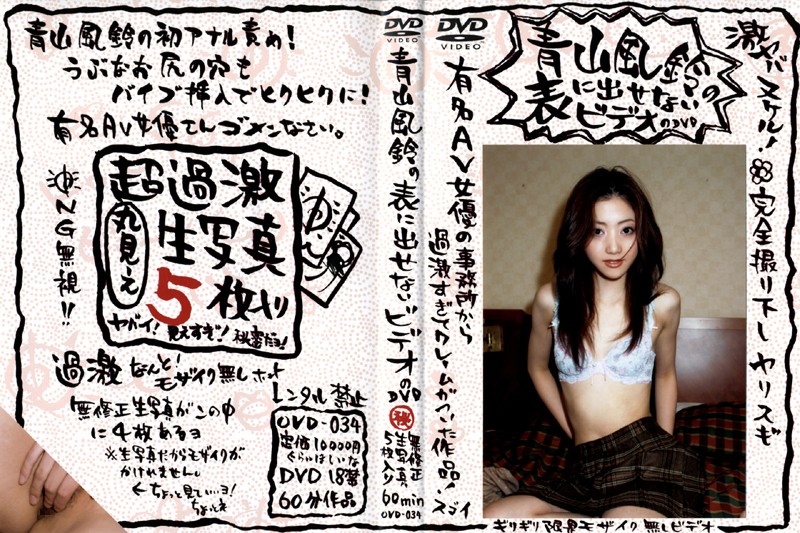 青山風鈴の初アナル責め!
うぶなお尻の穴も
バイブ挿入でヒクヒクに!
有名AV女優でんゴメンなさい。
NG無視!!
超過激
丸見え
生写真
5枚入り
ヤバイ!見えすぎ!秘密だヨ!
過激なんと!
モザイク無し
無修正生写真がこの中
に4枚あるヨ
※生写真だからモザイクが
かけれません。
←ちょっと見てぃ…ヨ!
レンタル禁止
OVD-034
定価10000円
ぐらいはいいな
DVD 18禁
60分作品
DVD
VIDEO
青山風鈴の表に出せないビデオの
DVD
秘
無修正
生写真
5枚入り
60min
OVD-034
DVD
VIDEO
有名AV女優の事務所から
過激すぎてクレームがついた作品!
スゴイ
青山風鈴の
表に出せない
ビデオのDVD
激ヤバヌケル!
完全撮り下しヤリスギ
ギリギリ限界モザイク無しビデオ